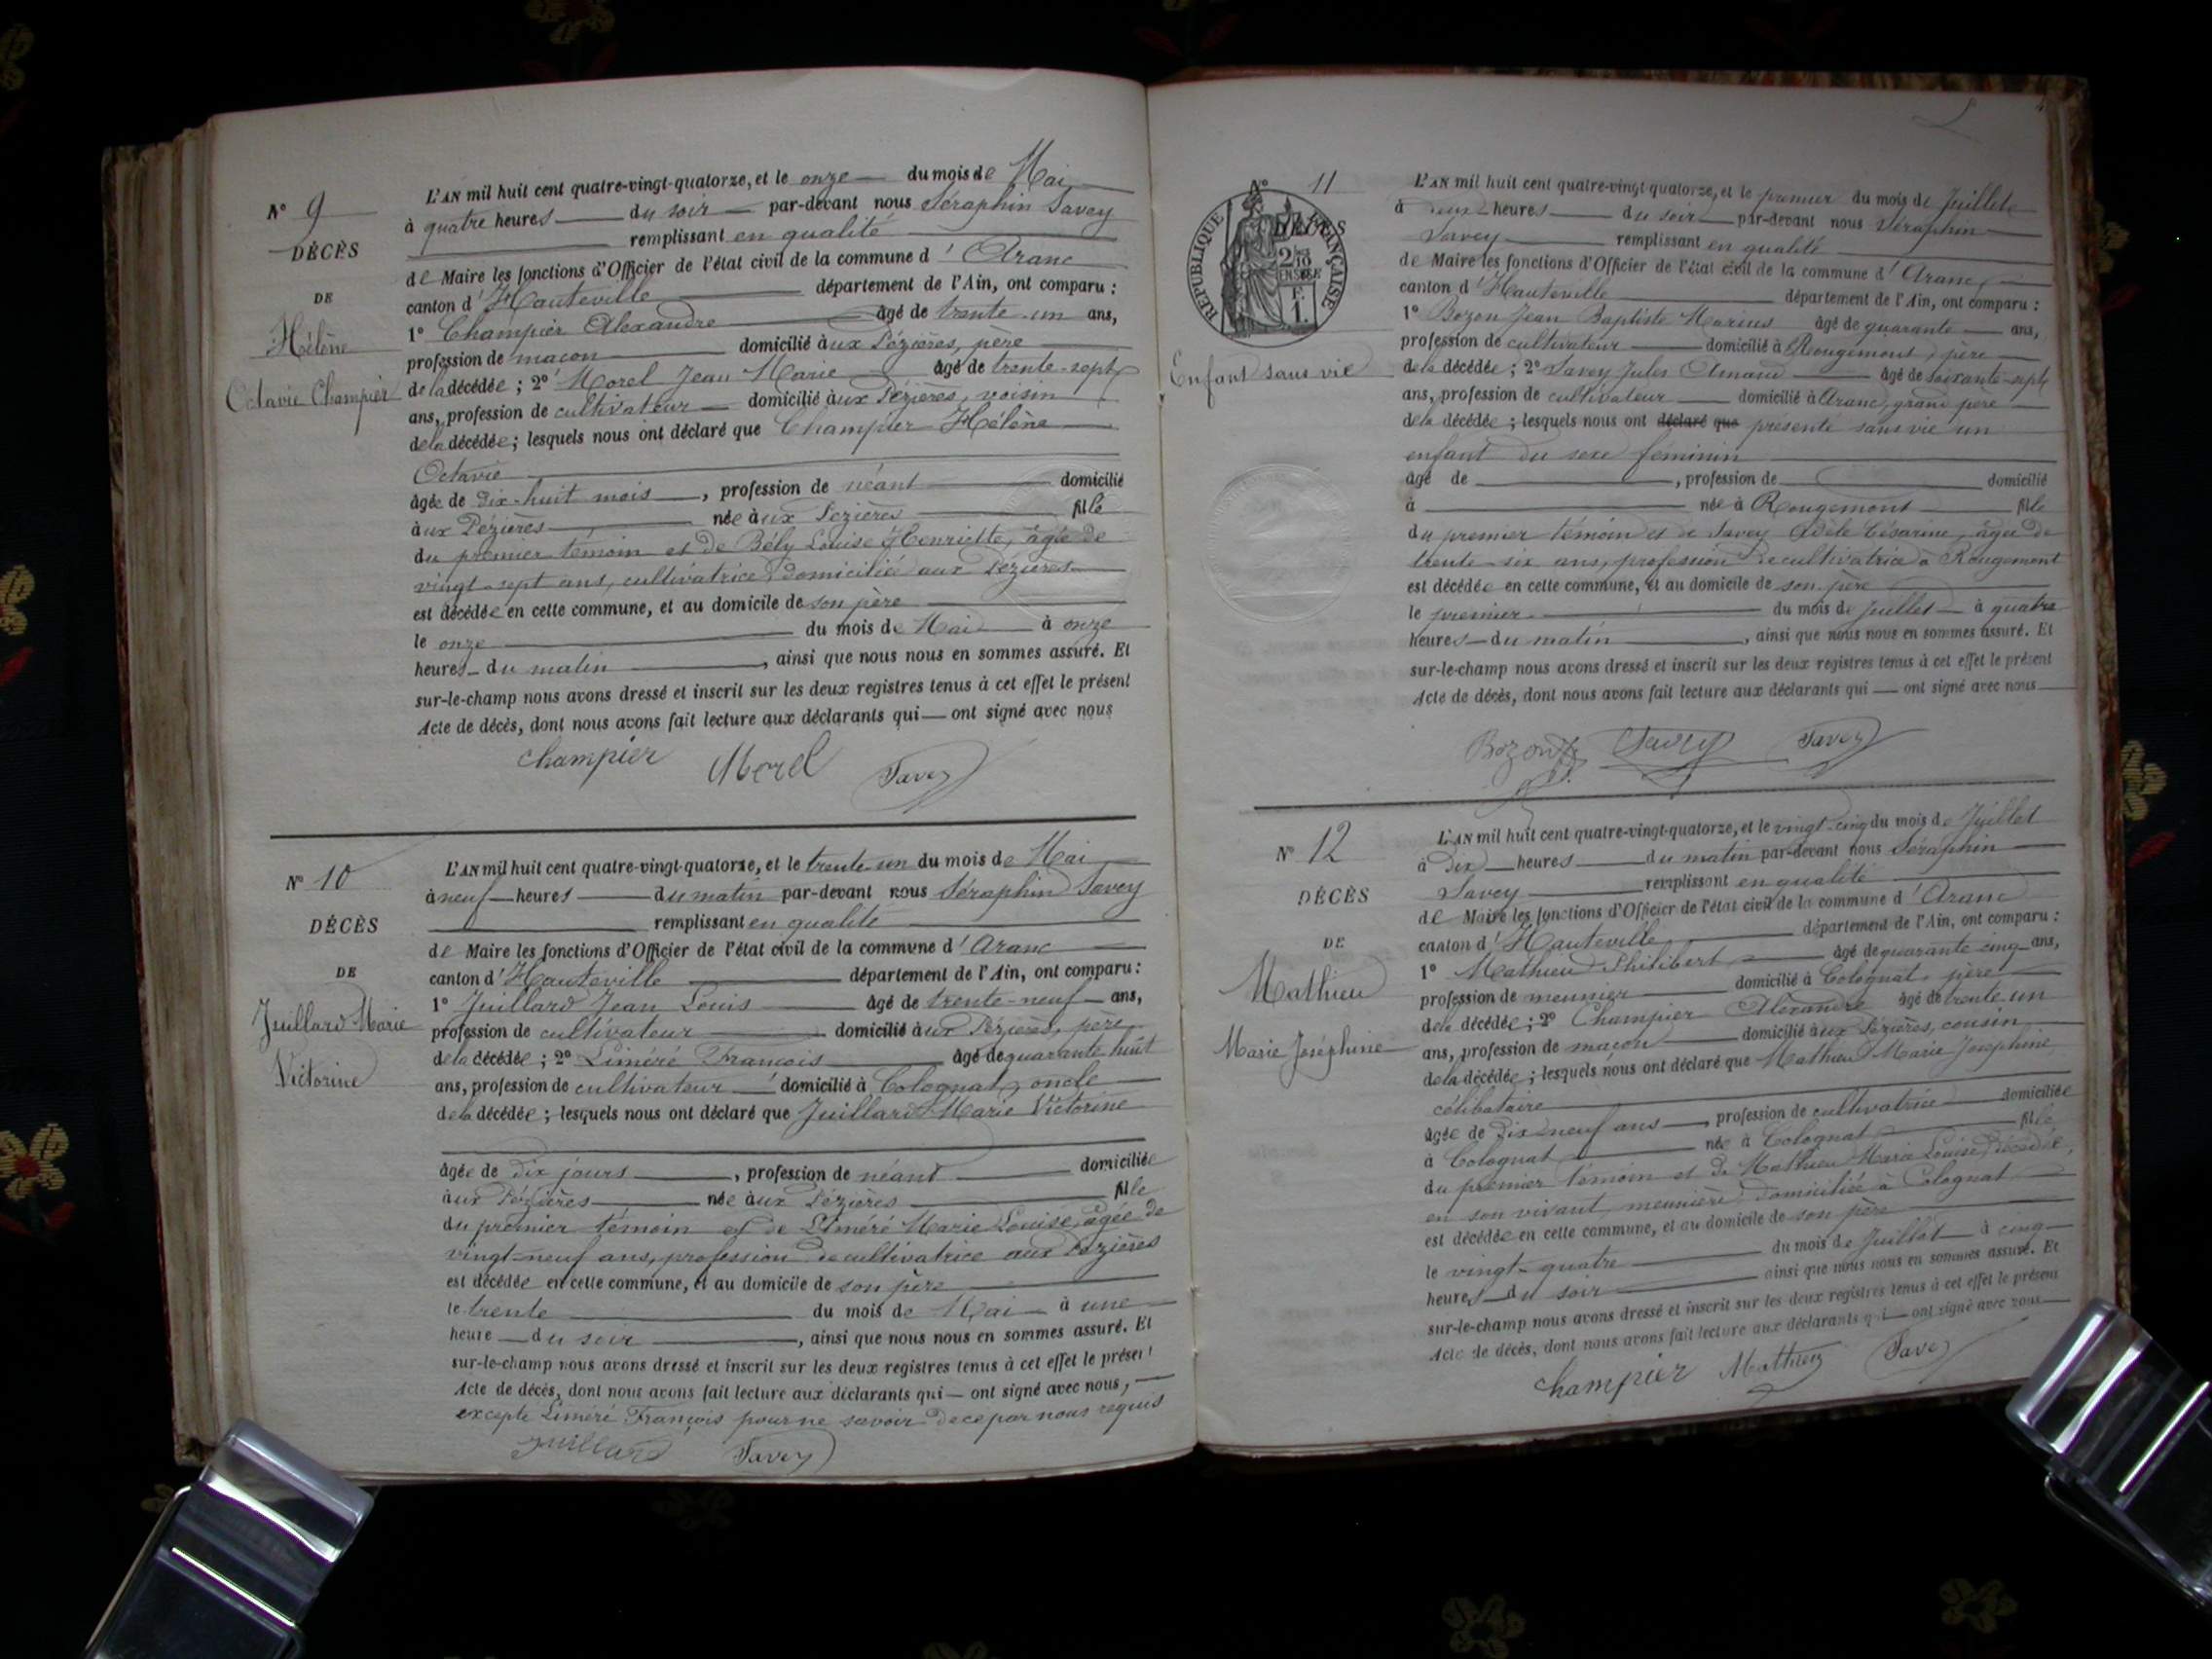 N° 9
DÉCÈS
DE
Hélène
Octavie Champier
L'AN mil huit cent quatre-vingt-quatorze, et le onze du mois de Mai
à quatre heures du soir par-devant nous Séraphin Savey
remplissant en qualité
de Maire les fonctions d'Officier de l'état civil de la commune d'Aranc
canton d'Hauteville département de l'Ain, ont comparu :
1° Champier Alexandre âgé de trente-un ans,
profession de maçon domicilié aux Pézières, père
de la décédée ; 2° Morel Jean Marie âgé de trente-sept
ans, profession de cultivateur domicilié aux Pézières, voisin
de la décédée ; lesquels nous ont déclaré que Champier Hélène
Octavie
âgée de dix-huit mois, profession de néant domicilié
aux Pézières née aux Pézières fille
du premier témoin et de Bély Louise Henriette, âgée de
vingt-sept ans, cultivatrice, domiciliée aux Pézières
est décédée en cette commune, et au domicile de son père
le onze du mois de Mai à onze
heures du matin, ainsi que nous nous en sommes assuré. Et
sur-le-champ nous avons dressé et inscrit sur les deux registres tenus à cet effet le présent
Acte de décès, dont nous avons fait lecture aux déclarants qui — ont signé avec nous
Champier Morel Savey
N° 10
DÉCÈS
DE
Juillard Marie
Victorine
L'AN mil huit cent quatre-vingt-quatorze, et le trente-un du mois de Mai
à neuf heures du matin par-devant nous Séraphin Savey
remplissant en qualité
de Maire les fonctions d'Officier de l'état civil de la commune d'Aranc
canton d'Hauteville département de l'Ain, ont comparu :
1° Juillard Jean Louis âgé de trente-neuf ans,
profession de cultivateur domicilié aux Pézières, père
de la décédée ; 2° Liméré François âgé de quarante huit
ans, profession de cultivateur domicilié à Colognat, oncle
de la décédée ; lesquels nous ont déclaré que Juillard Marie Victorine
âgée de dix jours, profession de néant domiciliée
aux Pézières née aux Pézières fille
du premier témoin et de Liméré Marie Louise, âgée de
vingt-neuf ans, profession de cultivatrice aux Pézières
est décédée en cette commune, et au domicile de son père
le trente du mois de Mai à une
heure du soir, ainsi que nous nous en sommes assuré. Et
sur-le-champ nous avons dressé et inscrit sur les deux registres tenus à cet effet le présent
Acte de décès, dont nous avons fait lecture aux déclarants qui — ont signé avec nous,
excepté Liméré François pour ne savoir de ce par nous requis
Juillard Savey
N° 11
DÉCÈS
RÉPUBLIQUE FRANÇAISE
2/10 EN SUS
F. 1.
Enfant sans vie
L'AN mil huit cent quatre-vingt-quatorze, et le premier du mois de Juillet
à deux heures du soir par-devant nous Séraphin
Savey remplissant en qualité
de Maire les fonctions d'Officier de l'état civil de la commune d'Aranc,
canton d'Hauteville département de l'Ain, ont comparu :
1° Bozon Jean Baptiste Marius âgé de quarante ans,
profession de cultivateur domicilié à Rougemont, père
de la décédée ; 2° Savey Jules Amand âgé de soixante-sept
ans, profession de cultivateur domicilié à Aranc, grand père
de la décédée ; lesquels nous ont déclaré que présenté sans vie un
enfant du sexe feminin
âgé de, profession de domicilié
à née à Rougemont fille
du premier témoin et de Savey Adèle Césarine, âgée de
trente-six ans, profession de cultivatrice à Rougemont
est décédée en cette commune, et au domicile de son père
le premier du mois de Juillet à quatre
heures du matin, ainsi que nous nous en sommes assuré. Et
sur-le-champ nous avons dressé et inscrit sur les deux registres tenus à cet effet le présent
Acte de décès, dont nous avons fait lecture aux déclarants qui — ont signé avec nous
Bozon Savey Savey
N° 12
DÉCÈS
DE
Mathieu
Marie Joséphine
L'AN mil huit cent quatre-vingt-quatorze, et le vingt-cinq du mois de Juillet
à dix heures du matin par-devant nous Séraphin
Savey remplissant en qualité
de Maire les fonctions d'Officier de l'état civil de la commune d'Aranc
canton d'Hauteville département de l'Ain, ont comparu :
1° Mathieu Philibert âgé de quarante cinq ans,
profession de meunier domicilié à Colognat, père
de la décédée ; 2° Champier Alexandre âgé de trente-un
ans, profession de maçon domicilié aux Pézières, cousin
de la décédée ; lesquels nous ont déclaré que Mathieu Marie Joséphine
célibataire
âgée de dix-neuf ans, profession de cultivatrice domiciliée
à Colognat née à Colognat fille
du premier témoin et de Mathieu Marie Louise, décédée,
en son vivant, meunière, domiciliée à Colognat
est décédée en cette commune, et au domicile de son père
le vingt-quatre du mois de Juillet à cinq
heures du soir ainsi que nous nous en sommes assuré. Et
sur-le-champ nous avons dressé et inscrit sur les deux registres tenus à cet effet le présent
Acte de décès, dont nous avons fait lecture aux déclarants qui — ont signé avec nous
Champier Mathieu Savey